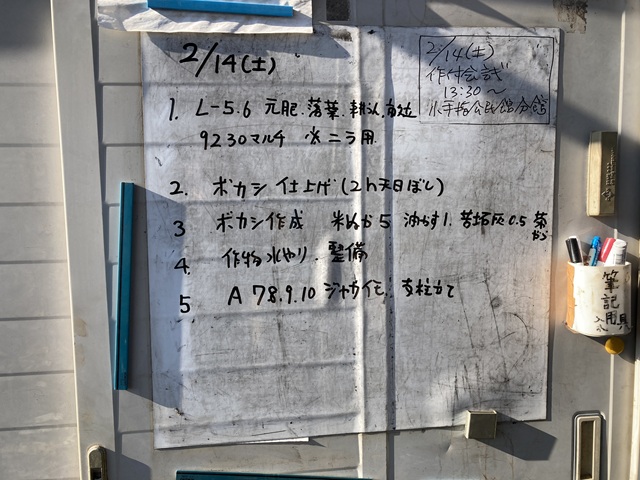 2/14(土)
1. L-5.6 元肥.落葉.耕うん.畝立
9230マルチ ※ニラ用
2. ボカシ 仕上げ(2h天日ぼし)
3 ボカシ作成 米ぬか5 油かす1. 苦土石灰0.5 茶がら
4. 作物水やり. 整備
5 A 78.9.10 ジャガイモ. 支柱立て
2/14(土)
作付会議
13:30~
小手指公民館分館
筆記用具